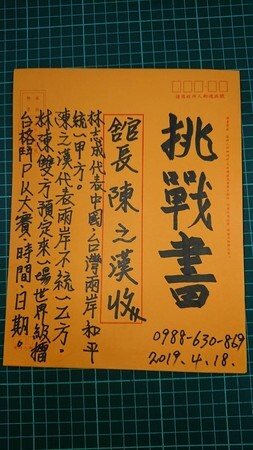 挑戰書
0988-630-869
2019.4.18.
舘長陳之漢收
林志成代表中国.台灣兩岸和平
統一甲方。
陳之漢代表兩岸不統一乙方.
林.陳雙方預定來一場世界級擂
台格鬥PK大賽.時間.日期。